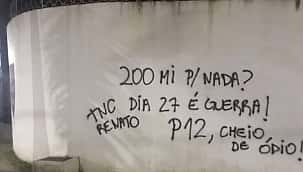 200 MI P/ NADA?
TNC DIA 27 É GUERRA!
RENATO P12, CHEIO
DE ÓDIO!